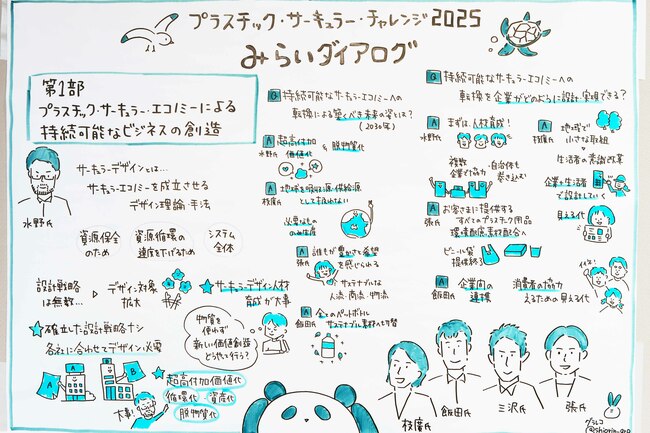 プラスチック・サーキュラー・チャレンジ2025
みらいダイアログ
第1部
プラスチック・サーキュラー・エコノミーによる
持続可能なビジネスの創造
水野氏
サーキュラーデザインとは…
サーキュラーエコノミーを成立させる
デザイン理論・手法
資源保全
のため
資源循環の
速度を下げるため
システム
全体
設計戦略
は無数…
デザイン対象
拡大
サーキュラーデザイン人材
育成が大事
確立した設計戦略ナシ
各社に合わせてデザイン必要
A
B
大事!
超高付加価値化
循環化・資産化
脱物質化
物質を
使わず
新しい価値創造
どうやって行う?
Q 持続可能なサーキュラーエコノミーへの
転換による築くべき未来の姿とは?
(2030年)
A 超高付加
価値化
脱物質化
水野氏
A 地球を吸収源・供給源
として扱わない
枝廣氏
必要なもの
のみ生産
A 誰もが豊かさと希望
を感じられる
張氏
サステナブルな
人流・商流・物流
A 全てのペットボトル
サステナブル素材へ切替
飯田氏
Q 持続可能なサーキュラーエコノミーへの
転換を企業がどのように設計・実現できる?
A まずは、人材育成!
水野氏
複数
企業で協力
自治体も
巻き込む
A 地域で
小さな取組
枝廣氏
生活者の意識改革
企業と生活者
で設計していく
見える化
A お客さまに提供する
すべてのプラスチック用品
環境配慮素材配合へ
張氏
ビニール袋
提供終了
A 企業間の
連携
飯田氏
消費者の協力
えるための見える化
イイネ!
枝廣氏
飯田氏
三沢氏
張氏
グラレコ